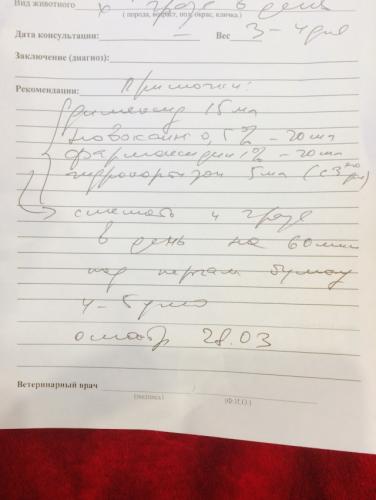 Вид животного х 2 раза в день
( порода, возраст, пол, окрас, кличка.)
Дата консультации: — Вес 3-4 дня
Заключение (диагноз):
Рекомендации: Примочки:
димексид 15 мл
новокаин 0,5% - 20 мл
1% - 20 мл
гидрокортизон 5 мл (с 3
смешать 4 раза
в день на 60 мин
под пергам бумагу
4-5 дней
осмотр 28.03
Ветеринарный врач
(подпись) (Ф.И.О.)